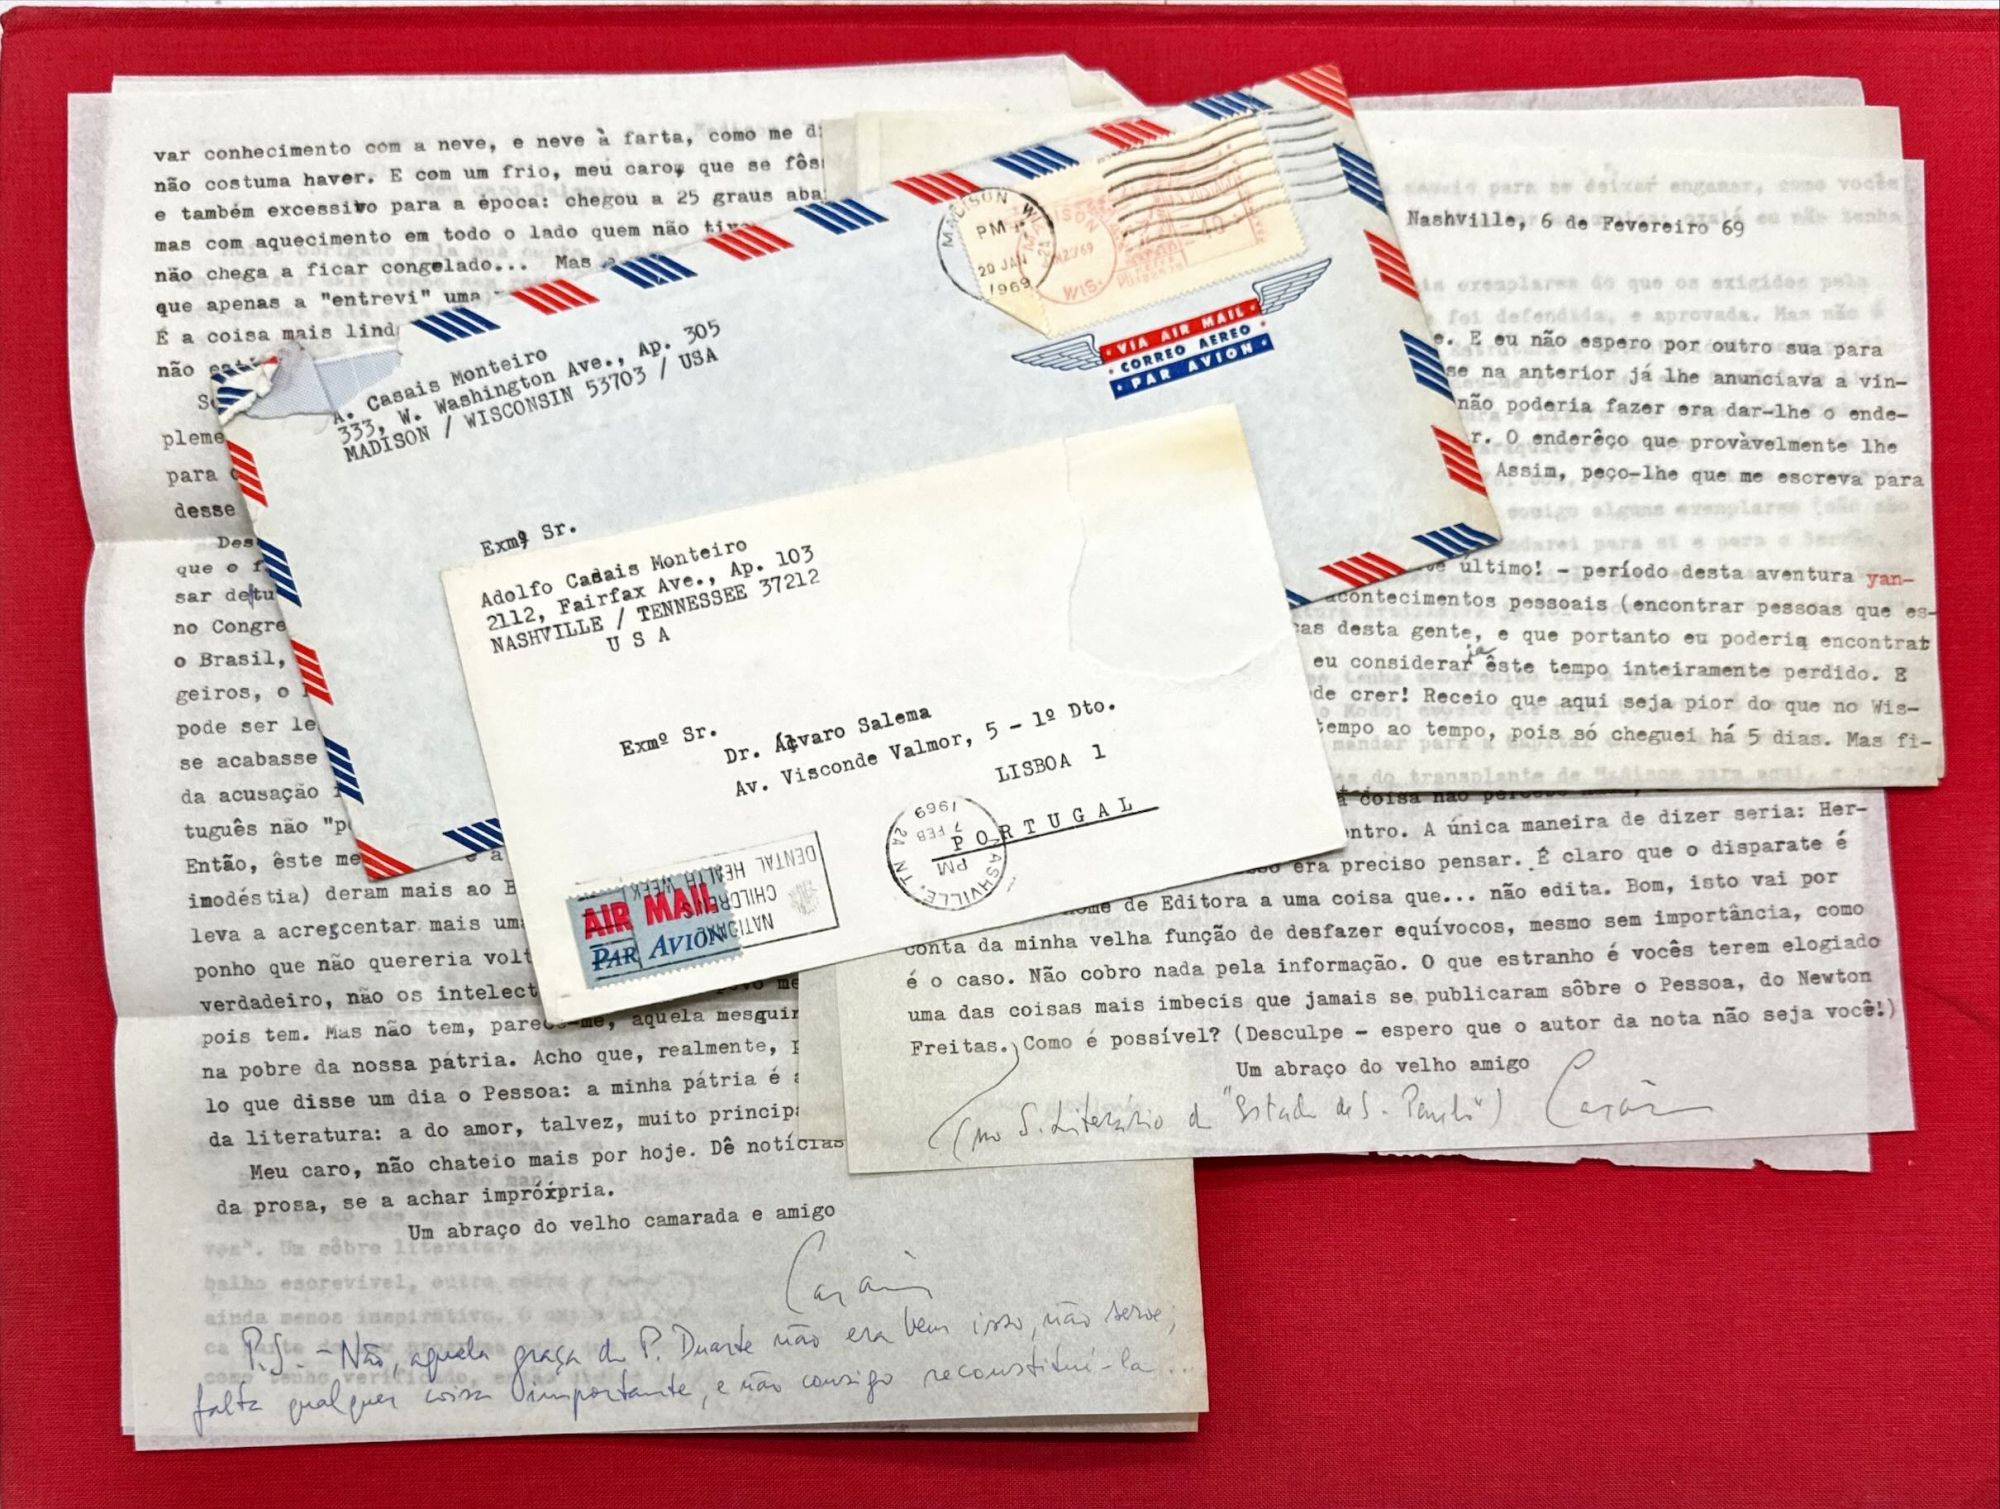 var conhecimento com a neve, e neve à farta, como me d
não costuma haver. E com um frio, meu caro, que se fôs
e também excessivo para a época: chegou a 25 graus aba
mas com aquecimento em todo o lado quem não
não chega a ficar congelado... Mas
que apenas a "entrevi" uma
É a coisa mais lind
não
pleme
para
desse
Des
que o f
sar detu
no Congre
o Brasil,
geiros, o
pode ser le
se acabasse
da acusação
tuguês não "p
Então, êste me
imodéstia) deram mais ao
leva a acrescentar mais um
ponho que não quereria volt
verdadeiro, não os intelect
pois tem. Mas não tem, parece-me, aquela mesquin
na pobre da nossa pátria. Acho que, realmente,
lo que disse um dia o Pessoa: a minha pátria é a
da literatura: a do amor, talvez, muito princip
Meu caro, não chateio mais por hoje. Dê notícias
da prosa, se a achar imprópria.
Um abraço do velho camarada e amigo
Casais
P.S. - Não, aquela graça do P. Duarte não era bem isso, não serve;
falta qualquer coisa importante, e não consigo reconstituí-la...
A. Casais Monteiro
333, W. Washington Ave., Ap. 305
MADISON / WISCONSIN 53703 / USA
Exmº Sr.
MADISON
PM
20 JAN
1969
WIS.
VIA AIR MAIL
CORREO AEREO
PAR AVION
Adolfo Casais Monteiro
2112, Fairfax Ave., Ap. 103
NASHVILLE / TENNESSEE 37212
U S A
Exmº Sr.
Dr. Álvaro Salema
Av. Visconde Valmor, 5 - 1º Dto.
LISBOA 1
PORTUGAL
NASHVILLE, TN
PM
7 FEB
1969
NATIONAL
CHILDREN'S
DENTAL HEALTH WEEK
AIR MAIL
PAR AVION
Nashville, 6 de Fevereiro 69
e. E eu não espero por outro sua para
se na anterior já lhe anunciava a vin-
não poderia fazer era dar-lhe o ende-
r. O enderêço que provàvelmente lhe
Assim, peço-lhe que me escreva para
último! - período desta aventura yan-
acontecimentos pessoais (encontrar pessoas que es-
cas desta gente, e que portanto eu poderia encontrar
eu considerar já êste tempo inteiramente perdido. E
de crer! Receio que aqui seja pior do que no Wis-
tempo ao tempo, pois só cheguei há 5 dias. Mas fi-
coisa não
entro. A única maneira de dizer seria: Her-
era preciso pensar. É claro que o disparate é
nome de Editora a uma coisa que... não edita. Bom, isto vai por
conta da minha velha função de desfazer equívocos, mesmo sem importância, como
é o caso. Não cobro nada pela informação. O que estranho é vocês terem elogiado
uma das coisas mais imbecis que jamais se publicaram sôbre o Pessoa, do Newton
Freitas. Como é possível? (Desculpe - espero que o autor da nota não seja você!)
Um abraço do velho amigo
(no S. Literário d "Estado de S. Paulo") Casais